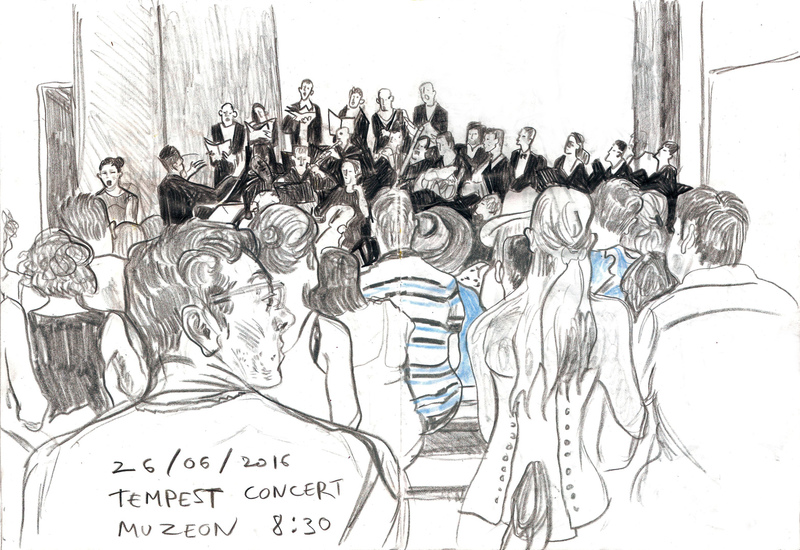 26/06/2016
TEMPEST CONCERT
MUZEON 8:30